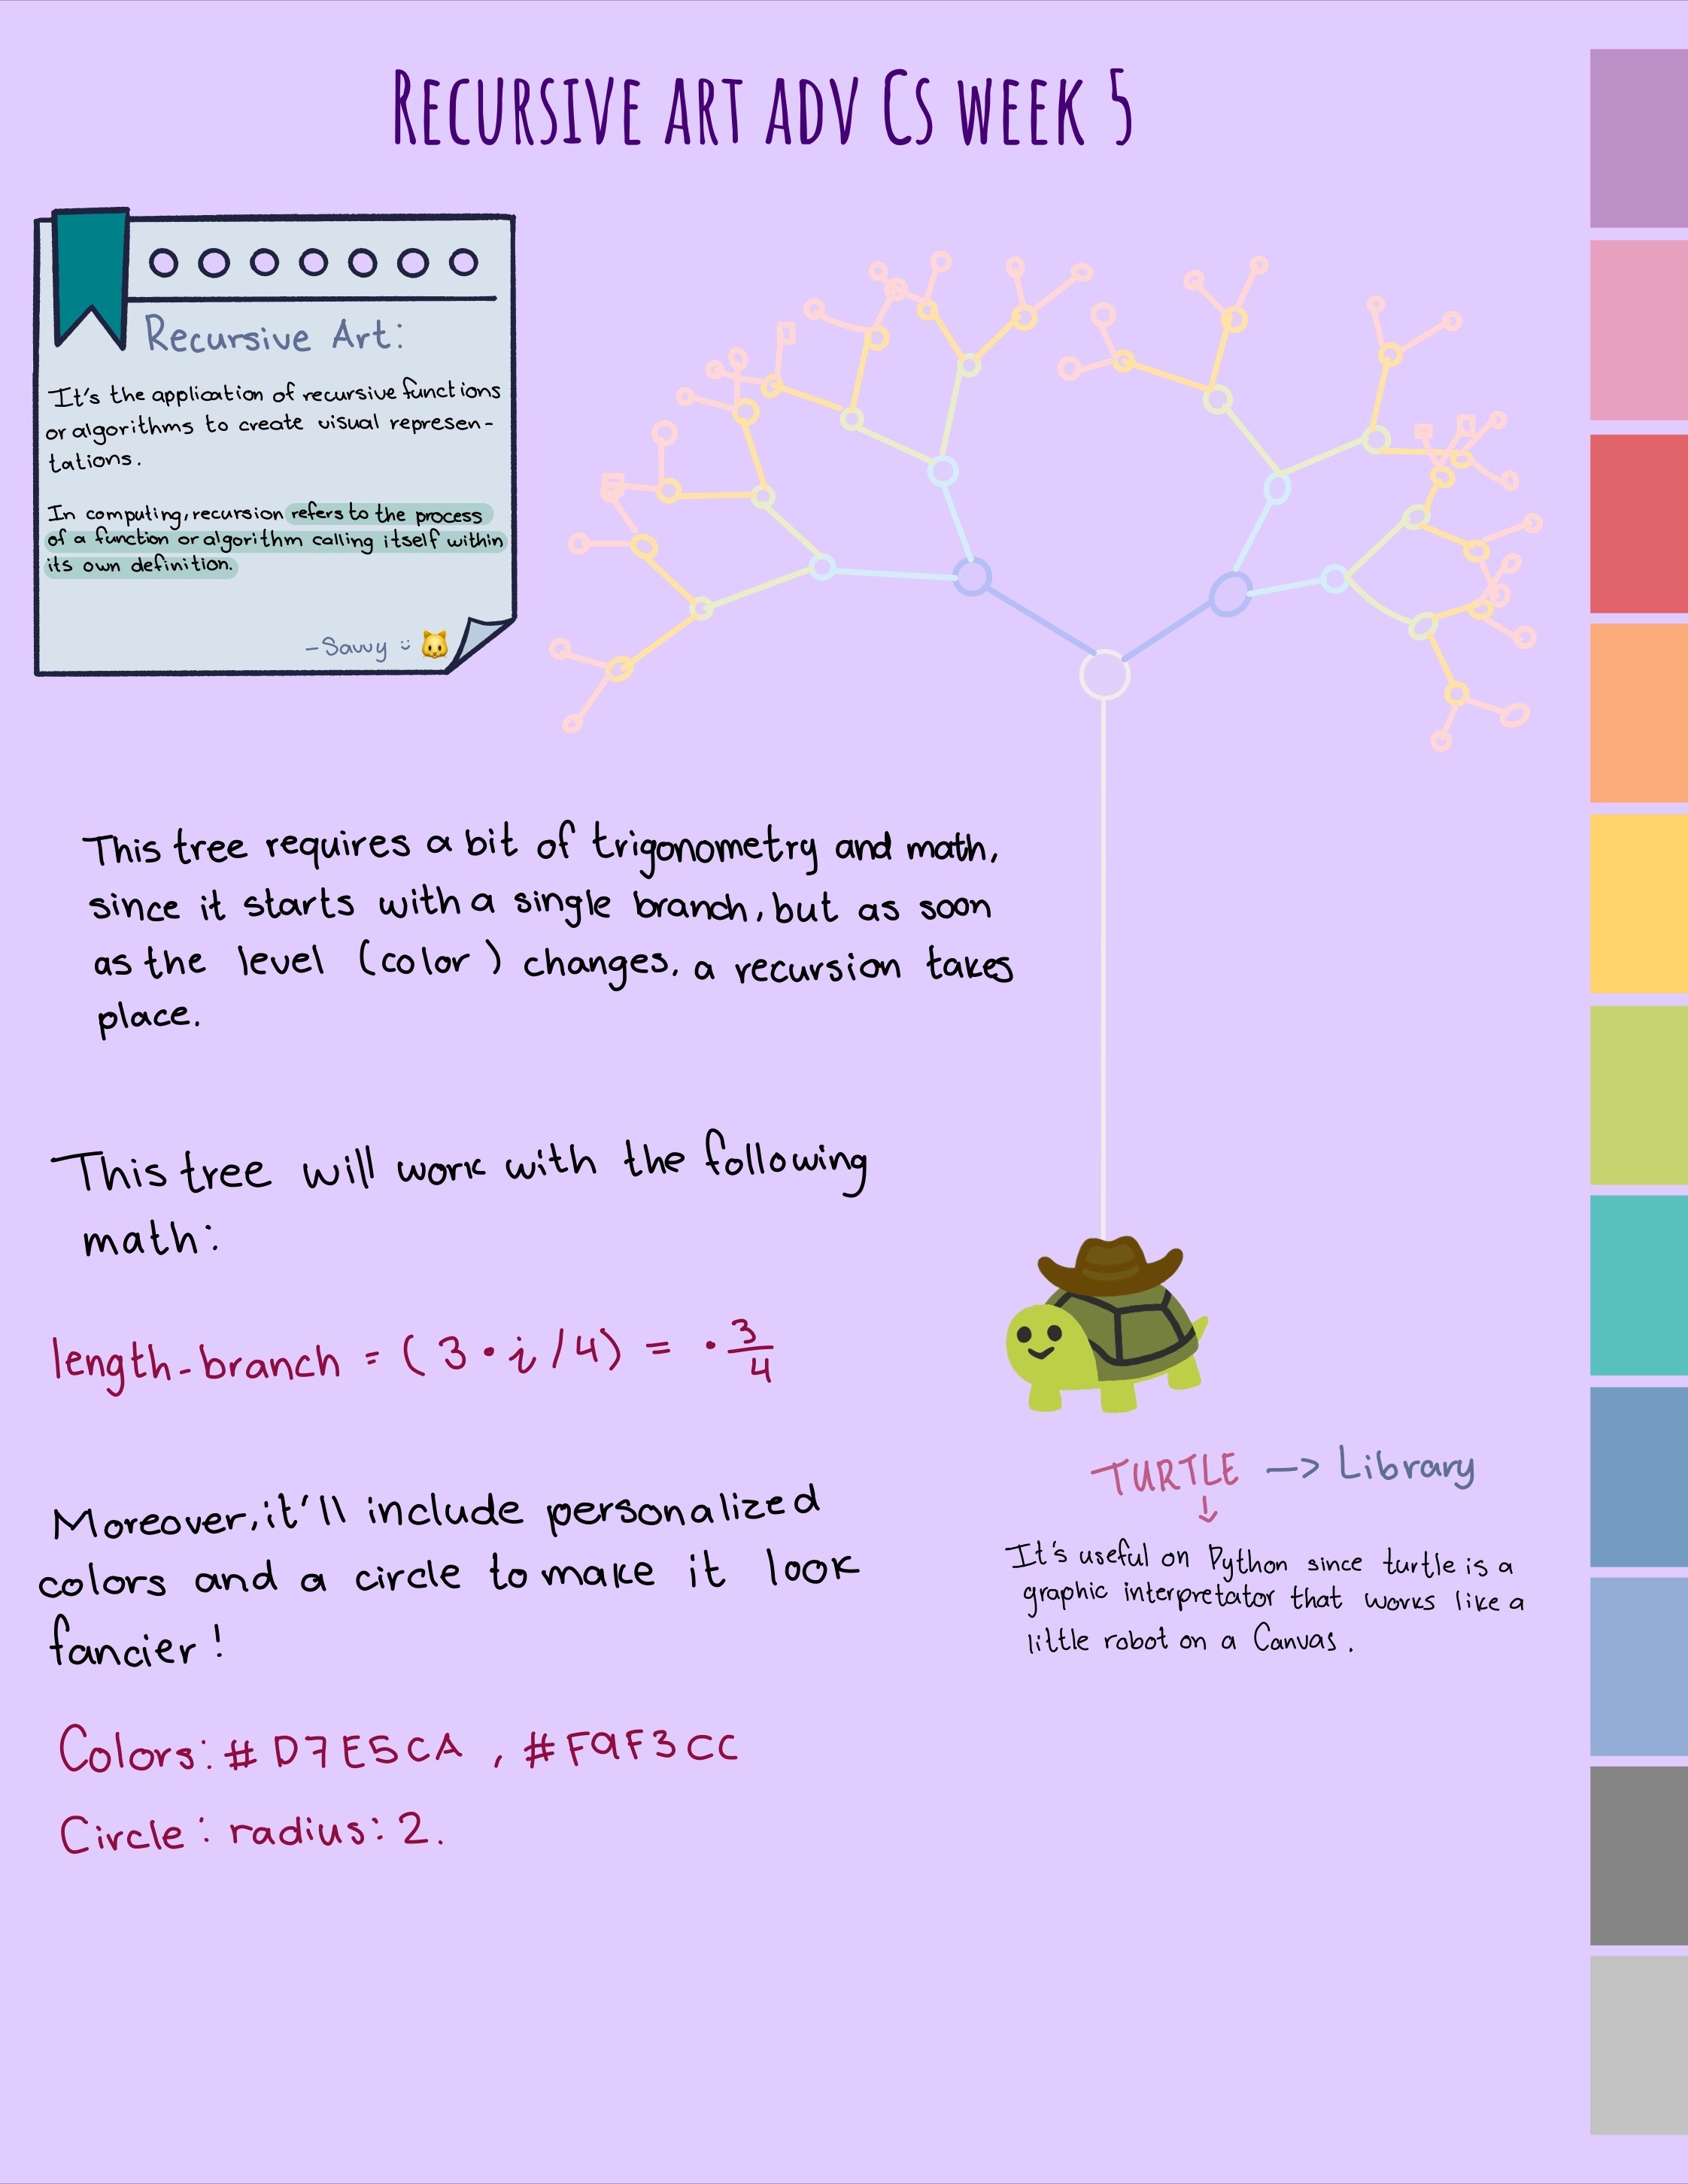 RECURSIVE ART ADV CS WEEK 5
Recursive Art:
It's the application of recursive functions
or algorithms to create visual represen-
tations.
In computing, recursion refers to the process
of a function or algorithm calling itself within
its own definition.
-Savvy :)
This tree requires a bit of trigonometry and math,
since it starts with a single branch, but as soon
as the level (color) changes, a recursion takes
place.
This tree will work with the following
math:
length-branch = (3 · i / 4) = · 3/4
Moreover, it'll include personalized
colors and a circle to make it look
fancier!
Colors: # D7E5CA , #F9F3CC
Circle: radius: 2.
TURTLE -> Library
↓
It's useful on Python since turtle is a
graphic interpretator that works like a
little robot on a Canvas.